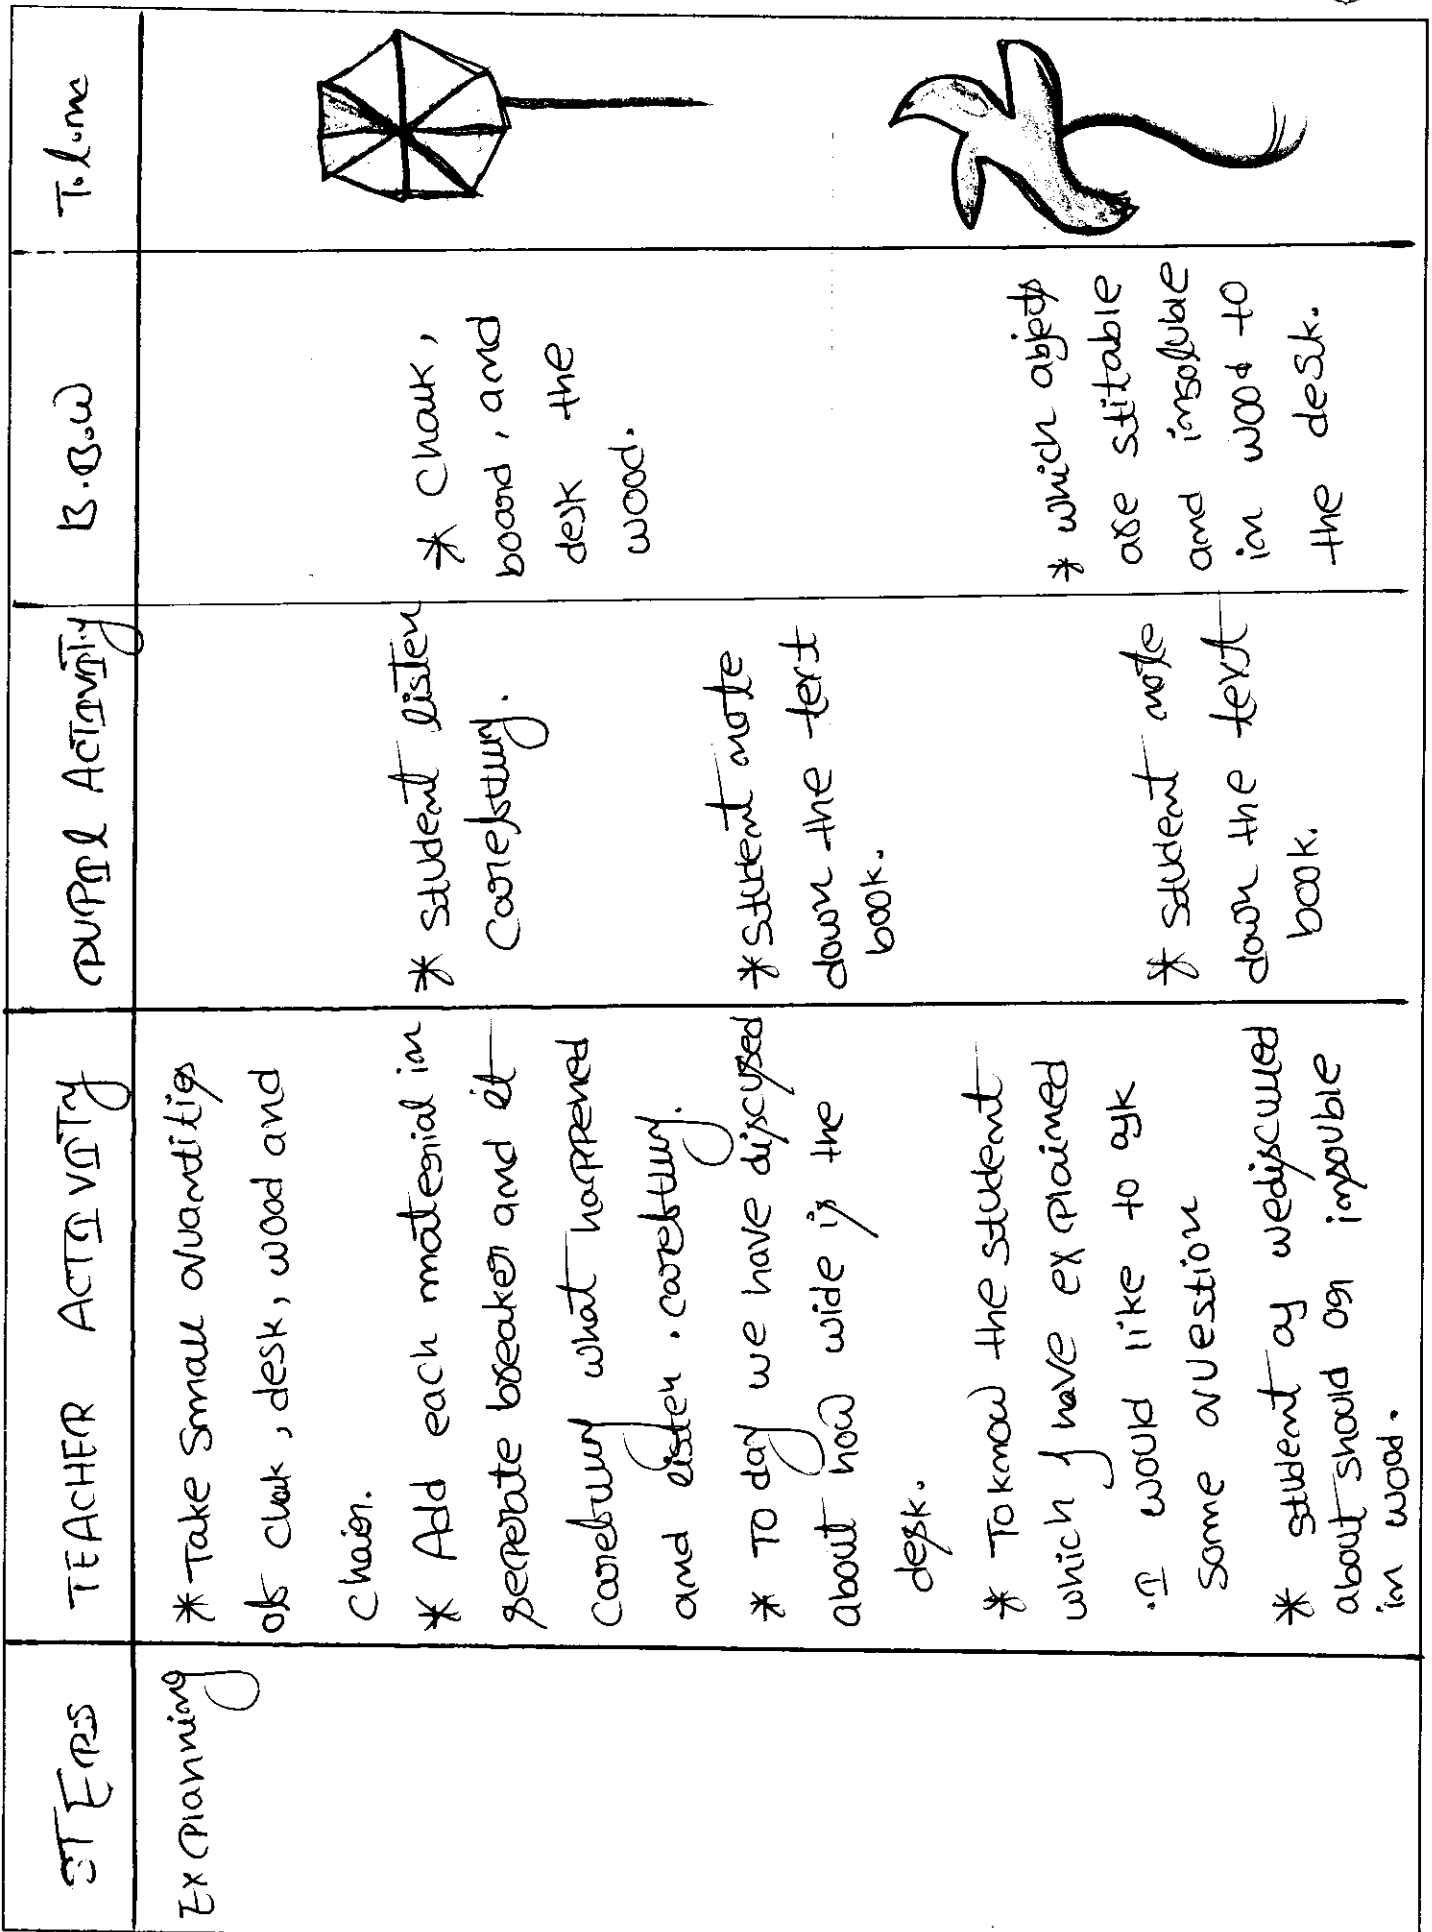 STEPS
TEACHER ACTIVITY
PUPIL ACTIVITY
B.B.W
Explanning
* Take Small quantities
of chak, desk, wood and
Chair.
* Add each material in
seperate breaker and it
carefully what happened
and listen. carefully.
* To day we have discused
about how wide is the
desk.
* To know the student
which I have explained
.I would like to ask
Some question
* student as wediscussed
about should or insouble
in wood.
* Student listen
Carefully.
* Student note
down the text
book.
* Student note
down the text
book.
* Chalk,
board, and
desk the
wood.
* which abjets
are stitable
and insoluble
in wood to
the desk.